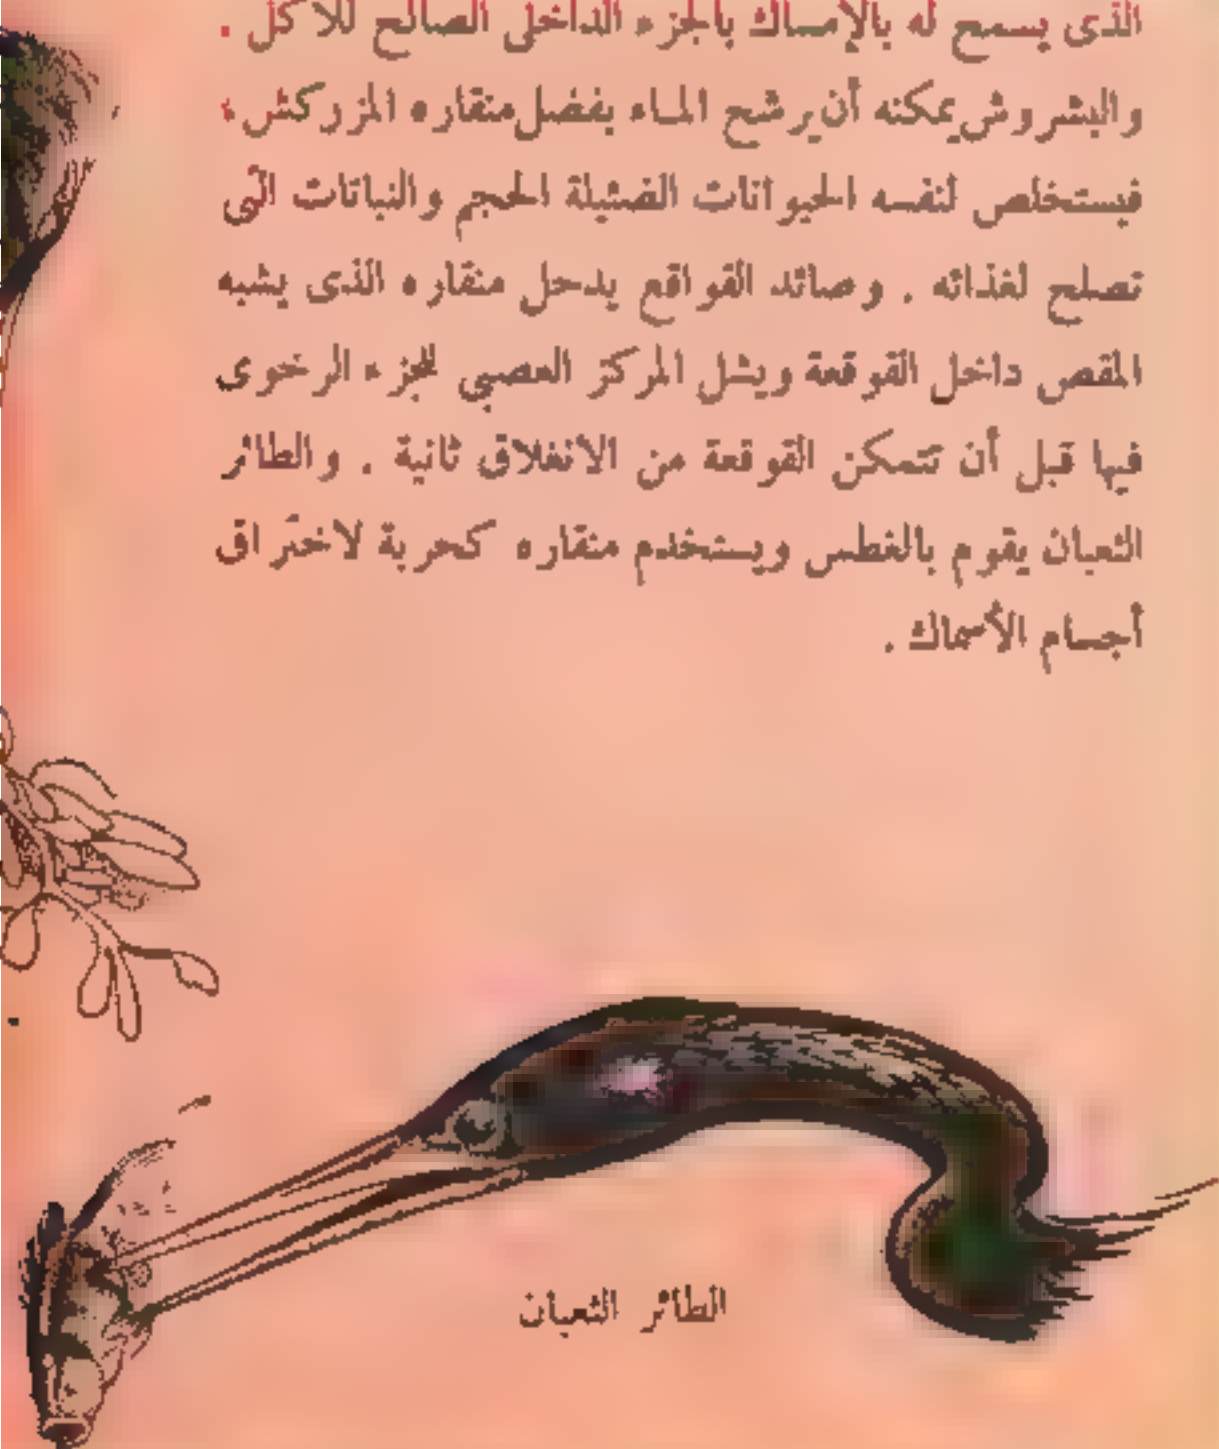 الذى يسمح له بالإمساك بالجزء الداخلى الصالح للأكل .
والبشروش يمكنه أن يرشح الماء بفضل منقاره المزركش ،
فيستخلص لنفسه الحيوانات الضئيلة الحجم والنباتات التى
تصلح لغذائه . وصائد القواقع يدخل منقاره الذى يشبه
المقص داخل القوقعة ويشل المركز العصبي للجزء الرخوى
فيها قبل أن تتمكن القوقعة من الانغلاق ثانية . والطائر
الثعبان يقوم بالغطس ويستخدم منقاره كحربة لاختراق
أجسام الأسماك .
الطائر الثعبان